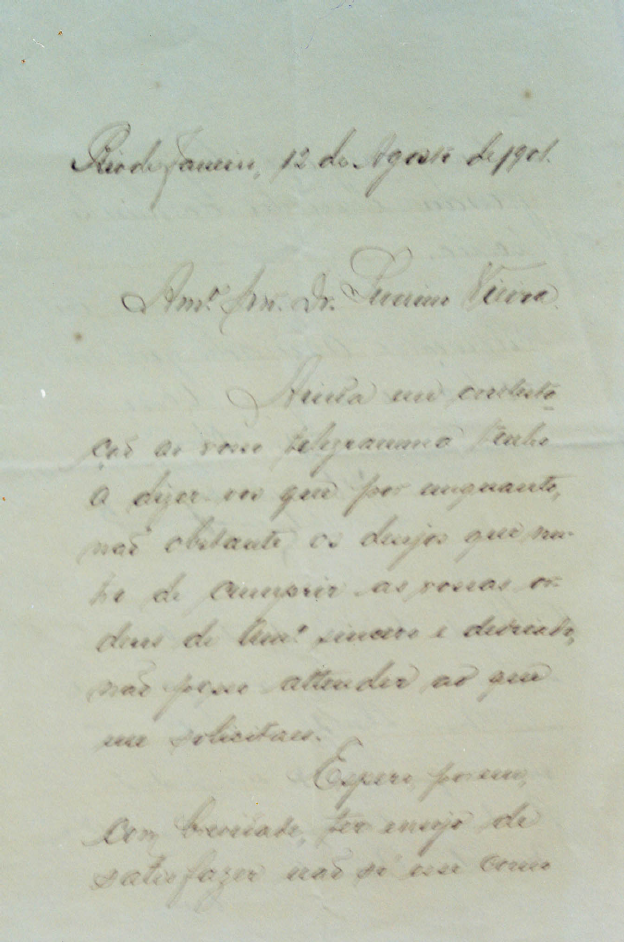 Rio de Janeiro, 12 de Agosto de 1901.
Am.º Snr. Dr. Severino Vieira
Ainda em contesta-
ção ao vosso telegramma tenho
a dizer-vos que por emquanto,
não obstante os desejos que nu-
tro de cumprir as vossas or-
dens de Am.º sincero e
não posso attender ao que
me solicitaes.
Espero porem,
com brevidade, ter ensejo de
satisfazer não só esse como